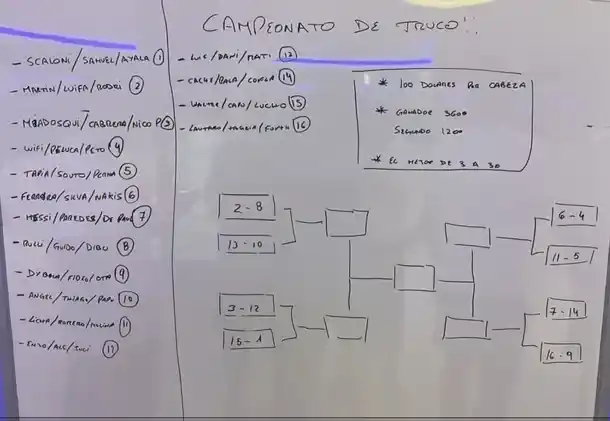 CAMPEONATO DE TRUCO!!
- SCALONI/SAMUEL/AYALA 1
- MARTIN/LUIFA/RODRI 2
- MBADOSQUI/CABRERA/NICO P 3
- WIFI/PELUCA/PETO 4
- TAPIA/SOUTO/ 5
- FERREYRA/SILVA/NAKIS 6
- MESSI/PAREDES/DE PAUL 7
- RULLI/GUIDO/DIBU 8
- DYBALA/FIDEO/OTA 9
- ANGEL/THIAGO/PAPU 10
- LICHA/ROMERO/MOLINA 11
- ENZO/ALE/JULI 12
- LUIS/DANI/MATI 13
- CACHE/BALA/ 14
- WALTER/CARI/LUCHO 15
- LAUTARO/ 16
* 100 DOLARES POR CABEZA
* GANADOR 3600
SEGUNDO 1200
* EL MEJOR DE 3 A 30
2 - 8
13 - 10
3 - 12
15 - 1
6 - 4
11 - 5
7 - 14
16 - 9